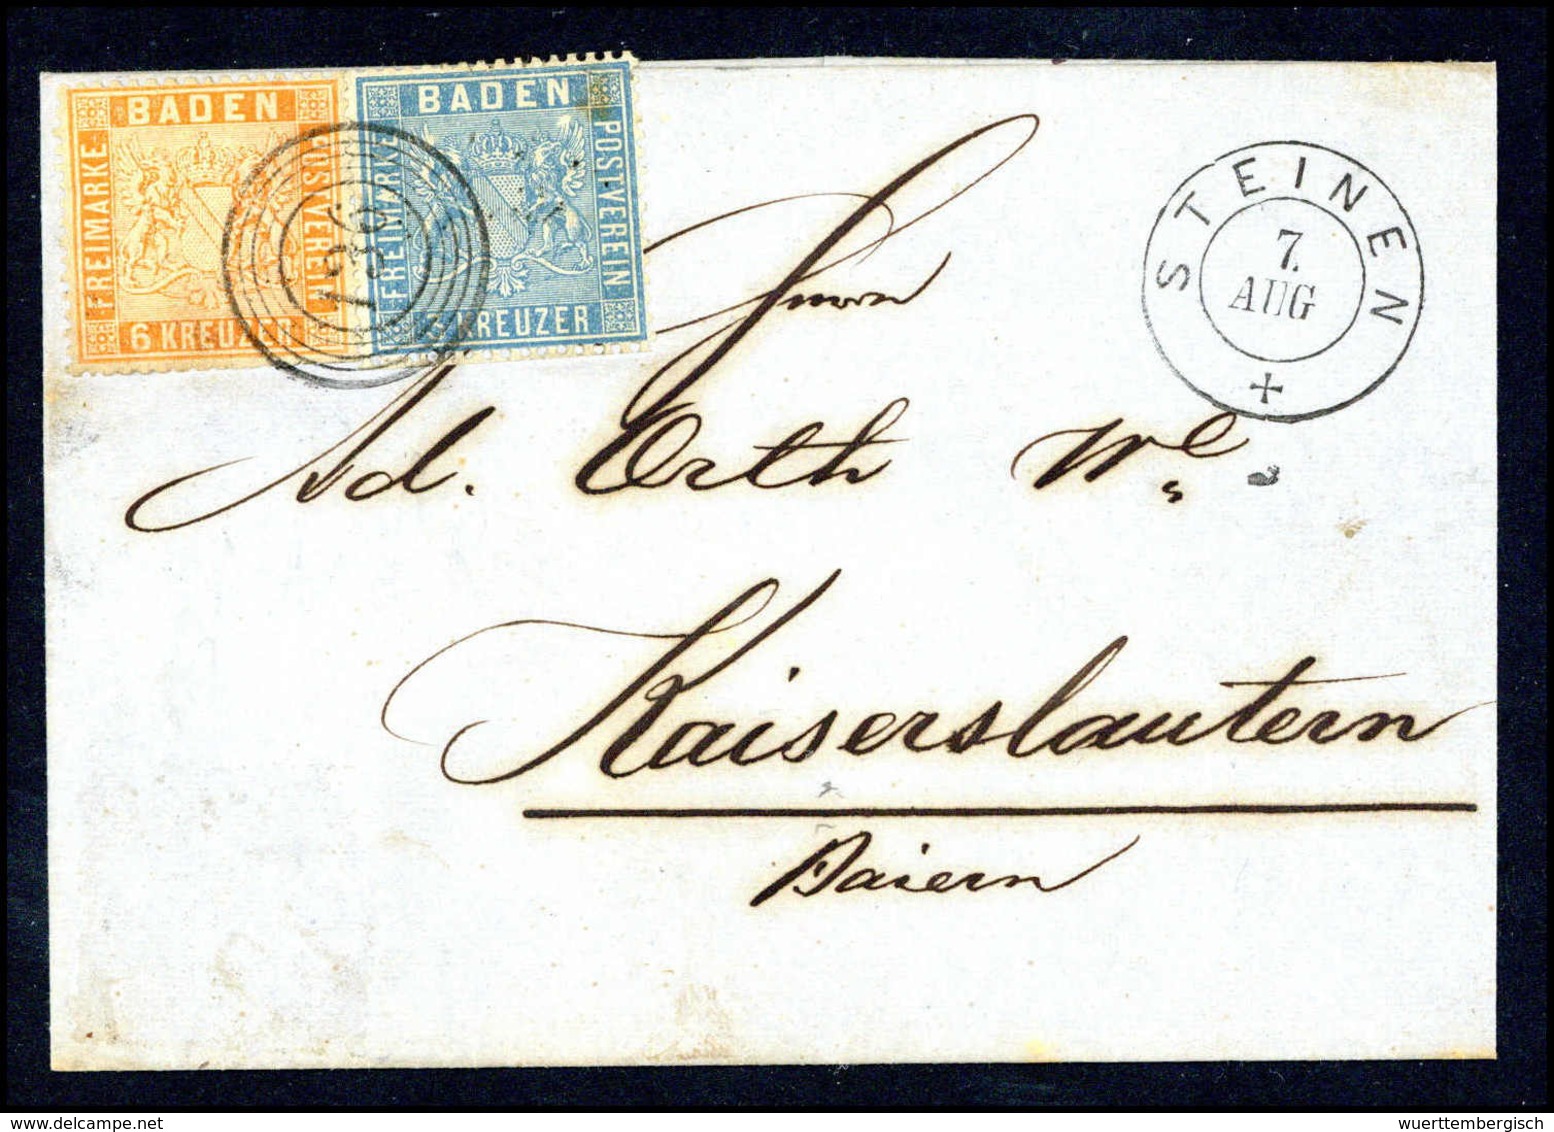 BADEN
FREIMARKE
POSTVEREIN
6 KREUZER
BADEN
FREIMARKE
POSTVEREIN
3 KREUZER
136
STEINEN
7.
AUG
Herrn
Ad. Orth
Kaiserslautern
Baiern
wuerttembergisch